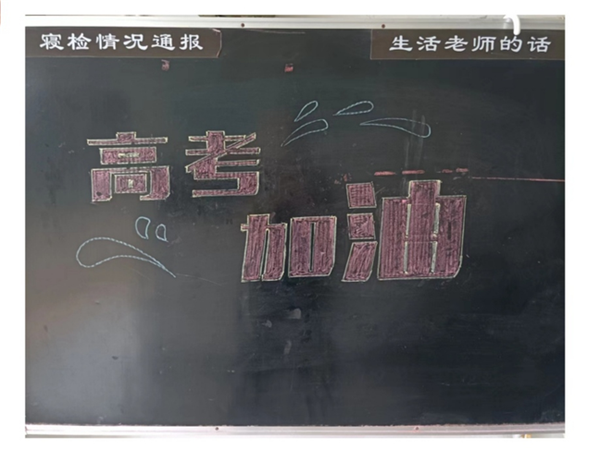 寝检情况通报
生活老师的话
高考
加油